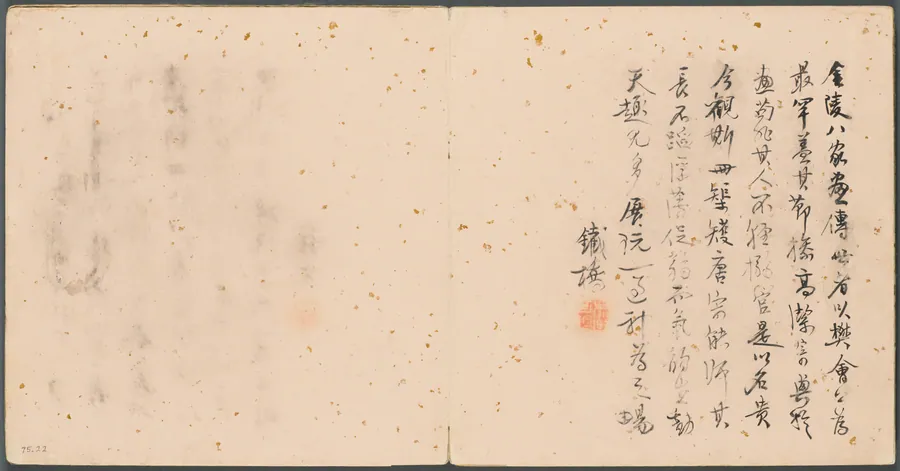 金陵八家畫傳世者以樊會公為
最罕蓋其節操高潔寄興於
畫茍非其人不輕搦管是以名貴
今觀斯冊榘矱唐宋能師其
長不蹈浮薄促弱而氣韵生動
天趣尤多展玩一過為之暢
鐵橋
75.22